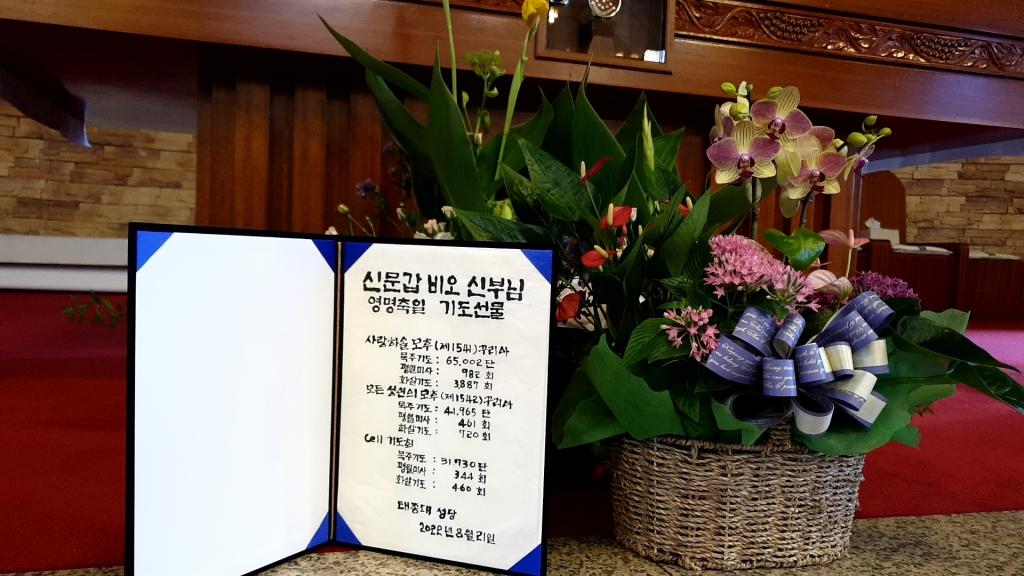 신문갑 비오 신부님
영명축일 기도선물
사랑하올 모후 (제1541) 꾸리아
묵주기도 : 65,002 단
평일미사 : 982 회
화살기도 : 3,887 회
모든 성인의 모후 (제1542) 꾸리아
묵주기도 : 41,965 단
평일미사 : 461 회
화살기도 : 720 회
Cell 기도회
묵주기도 : 31730 단
평일미사 : 344 회
화살기도 : 460 회
태종대 성당
2022년 8월 21일